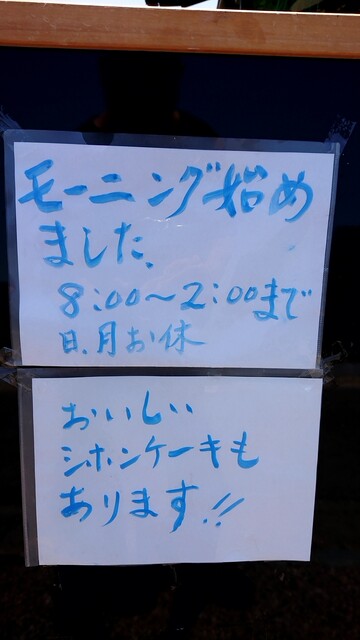 モーニング始め
ました、
8:00〜2:00まで
日、月お休
おいしい
シホンケーキも
あります!!